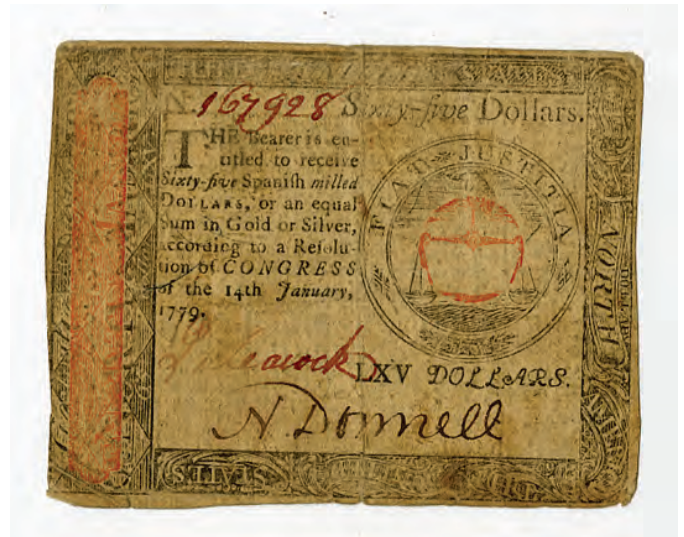 N. 167928 Sixty-five Dollars.
THE Bearer is en-
titled to receive
Sixty-five Spanish milled
DOLLARS, or an equal
Sum in Gold or Silver,
according to a Resolu-
tion of CONGRESS
of the 14th January,
1779.
FIAT JUSTITIA
LXV DOLLARS.
N Donnell
NORTH
STATES